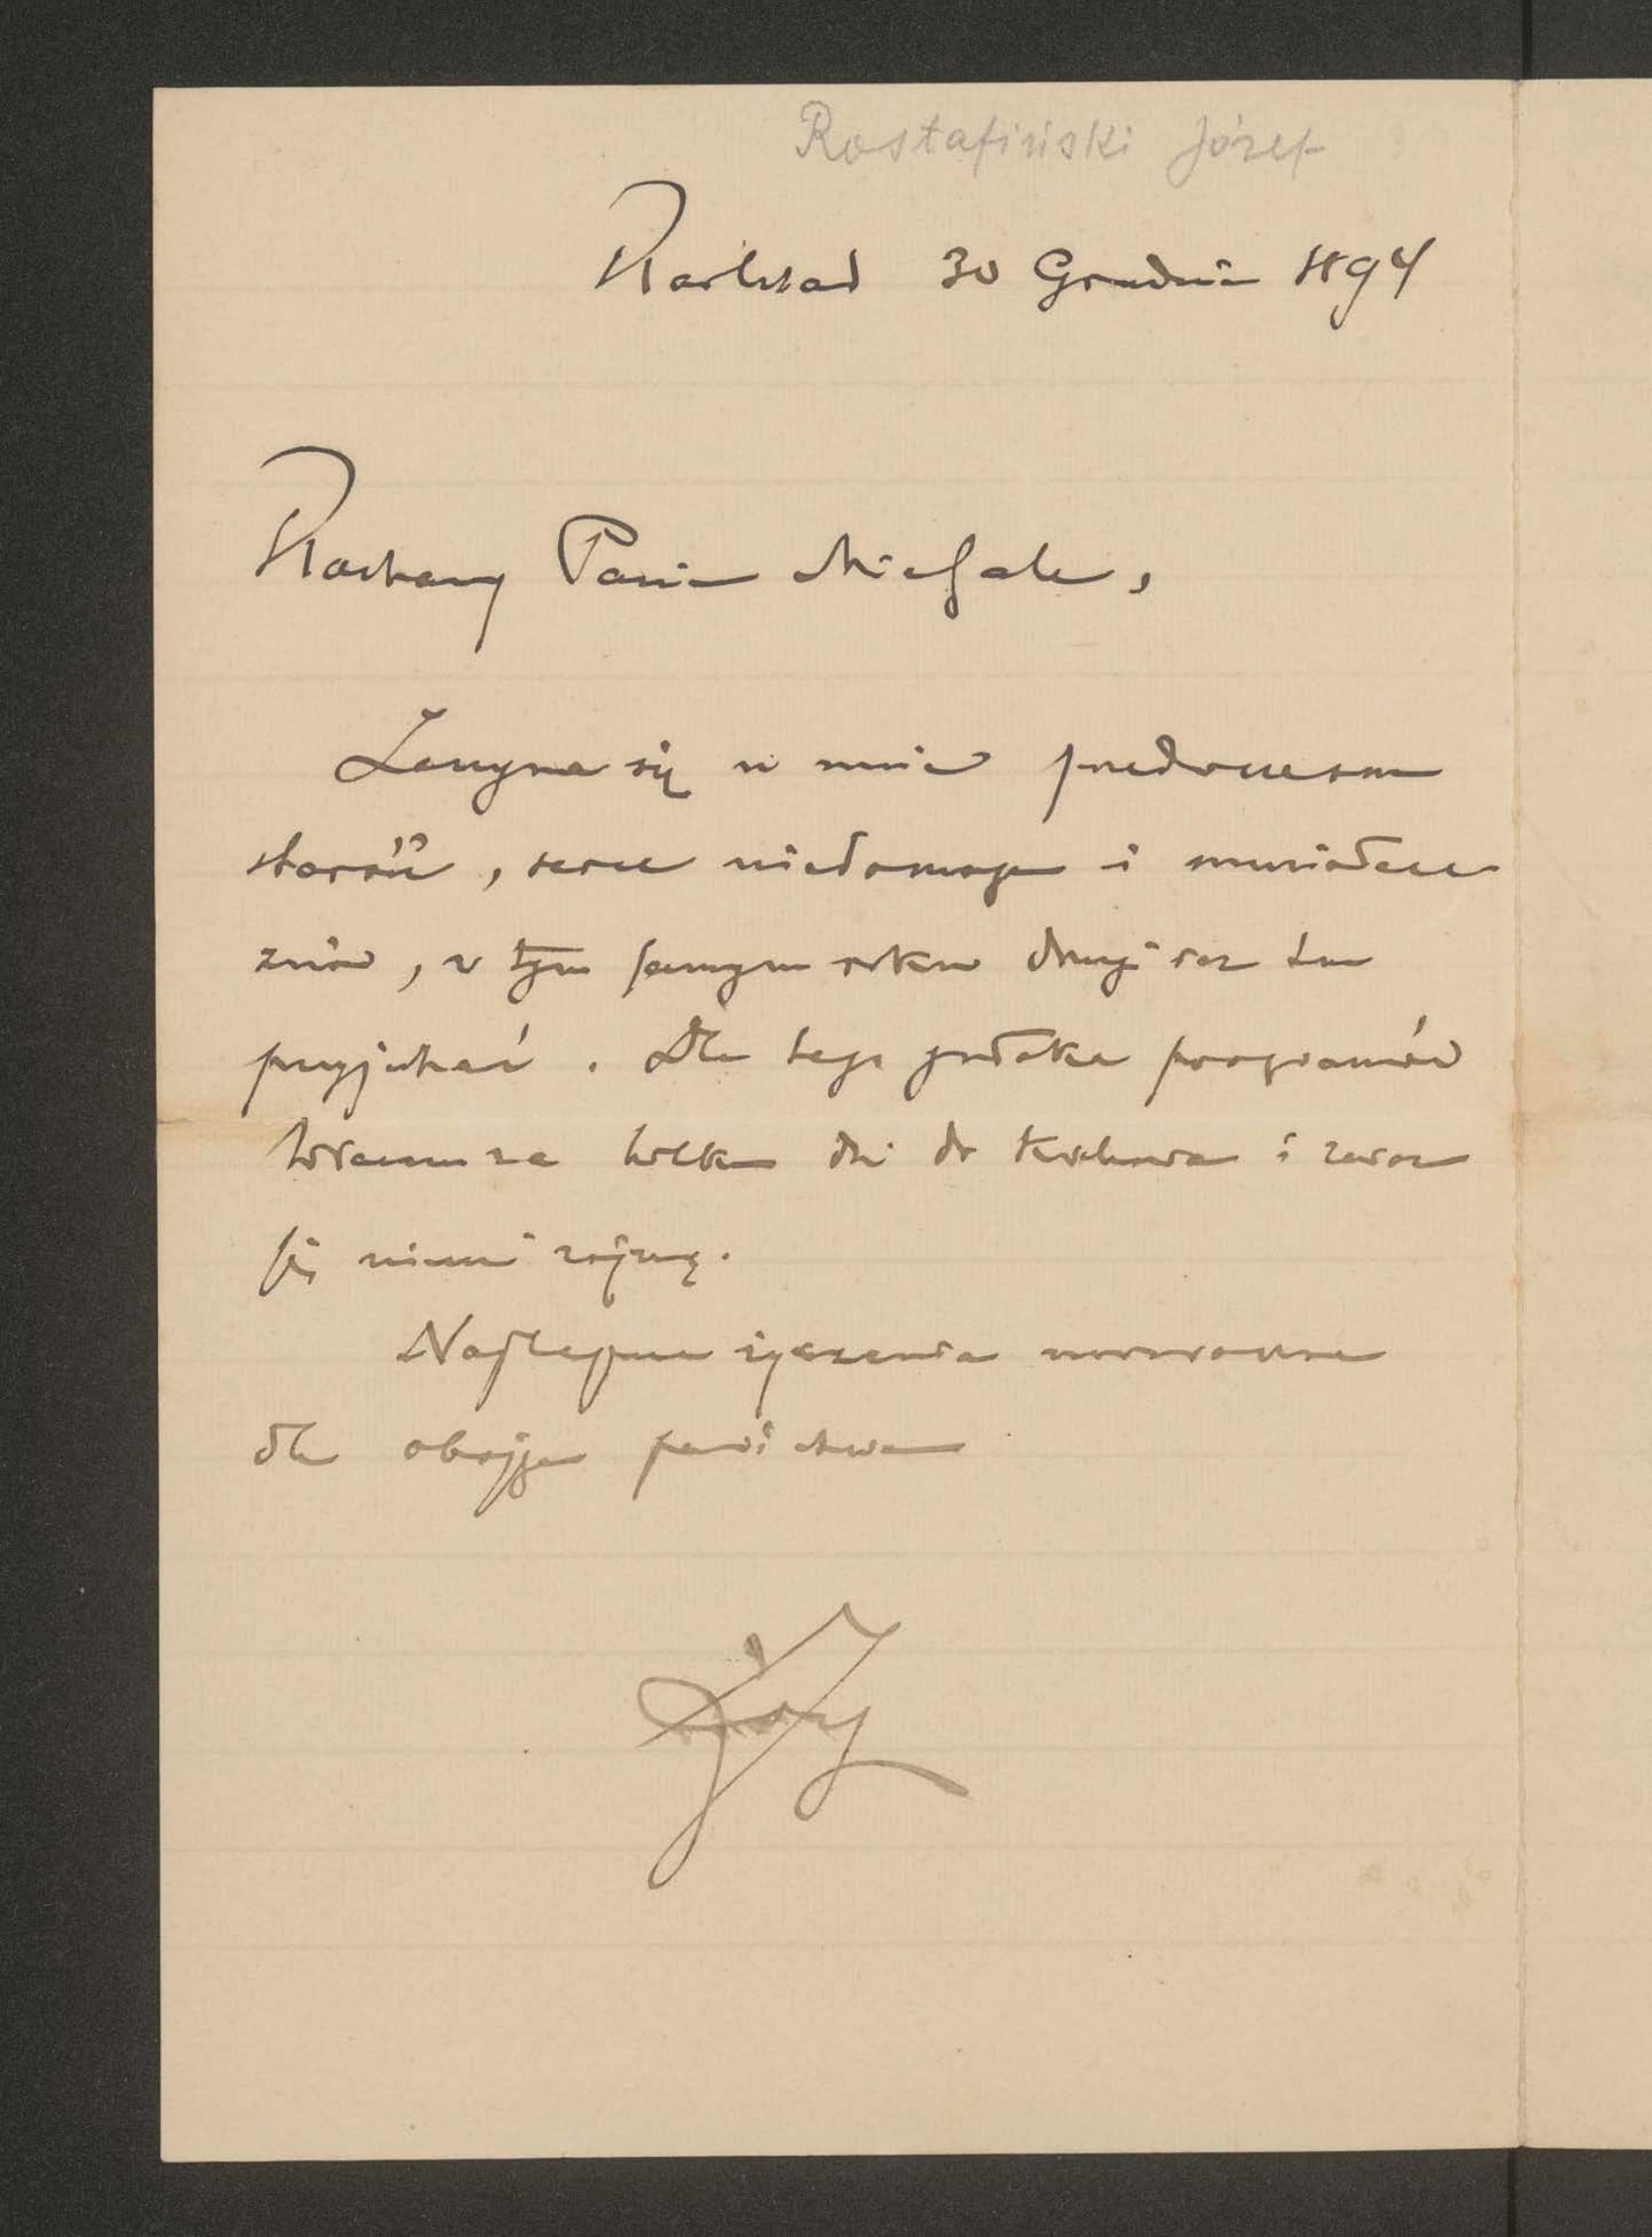 Rostafiński Józef
Karlsbad 30 Grudnia 1894
Kochany Panie Michale,
Zaczyna się u mnie przedwczesna
starość, serce niedomaga i musiałem
znów, w tym samym roku drugi raz tu
przyjechać. Dla tego zwłoka programów
Wracam za kilka dni do Krakowa i zaraz
się niemi zajmę.
Najlepsze życzenia noworoczne
dla obojga państwa